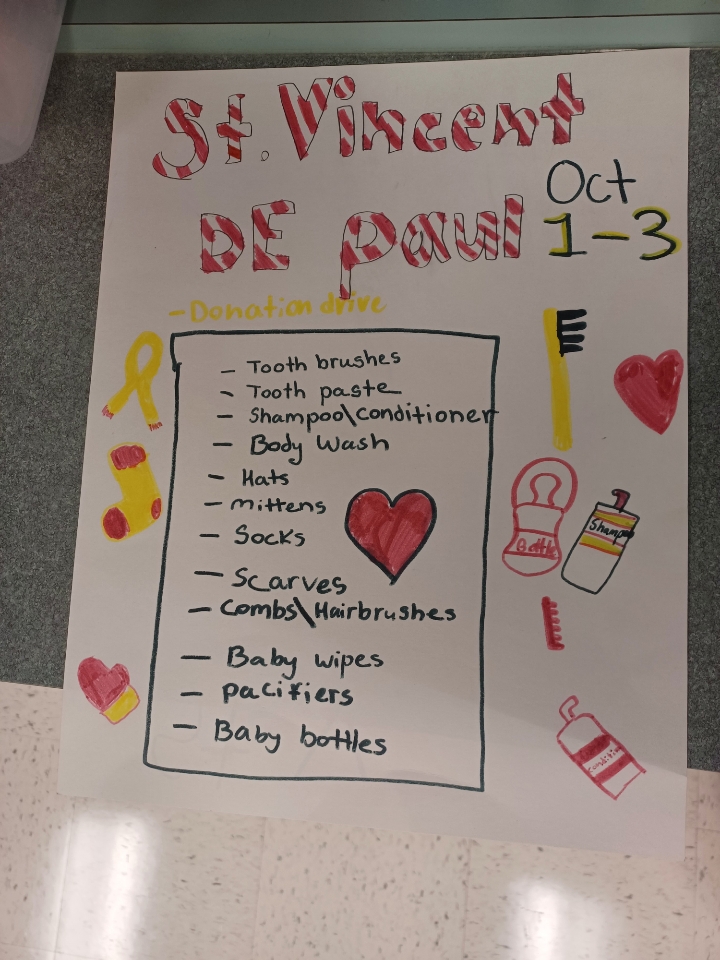 St. Vincent
DE paul
Oct
1-3
- Donation drive
- Tooth brushes
- Tooth paste
- Shampoo\Conditioner
- Body Wash
- Hats
- mittens
- Socks
- Scarves
- Combs\Hairbrushes
- Baby wipes
- pacifiers
- Baby bottles
Bottle
Shampoo